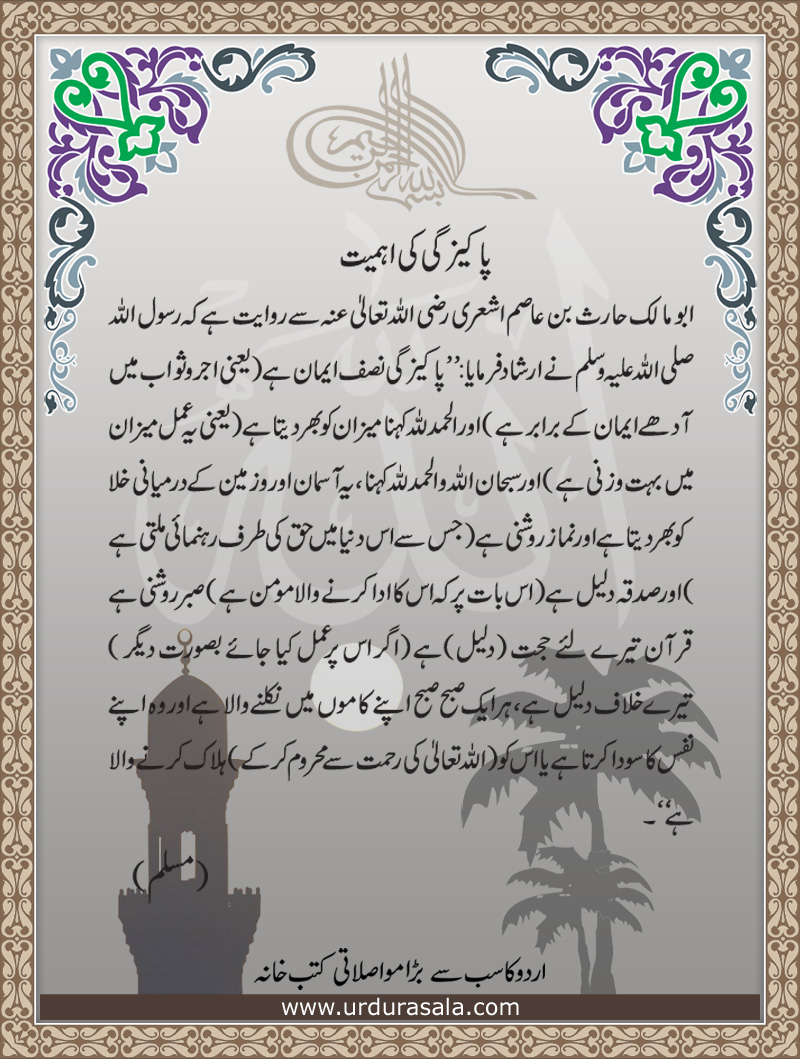 بسم الله الرحمن الرحیم
پاکیزگی کی اہمیت
ابو مالک حارث بن عاصم اشعری رضی اللہ تعالیٰ عنہ سے روایت ہے کہ رسول اللہ
صلی اللہ علیہ وسلم نے ارشاد فرمایا:’’پاکیزگی نصف ایمان ہے(یعنی اجر و ثواب میں
آدھے ایمان کے برابر ہے)اور الحمد للہ کہنا میزان کو بھر دیتا ہے(یعنی یہ عمل میزان
میں بہت وزنی ہے)اور سبحان اللہ والحمد للہ کہنا، یہ آسمان اور زمین کے درمیانی خلا
کو بھر دیتا ہے اور نماز روشنی ہے(جس سے اس دنیا میں حق کی طرف رہنمائی ملتی ہے
)اور صدقہ دلیل ہے(اس بات پر کہ اس کا ادا کرنے والا مومن ہے)صبر روشنی ہے
قرآن تیرے لئے حجت (دلیل)ہے(اگر اس پر عمل کیا جائے بصورت دیگر )
تیرے خلاف دلیل ہے، ہر ایک صبح صبح اپنے کاموں میں نکلنے والا ہے اور وہ اپنے
نفس کا سودا کرتا ہے یا اس کو(اللہ تعالیٰ کی رحمت سے محروم کر کے)ہلاک کرنے والا
ہے‘‘۔
(مسلم)
اللہ
اردو کا سب سے بڑا مواصلاتی کتب خانہ
www.urdurasala.com